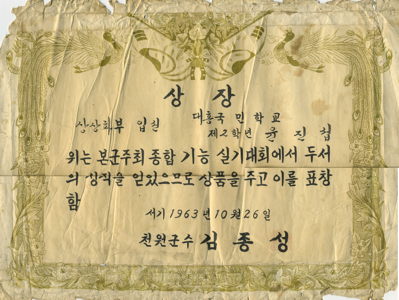 상 장
대흥국 민 학교
부 입선
제2학년 윤 진 섭
위는 본군주최 종합 기능 실기대회에서 두서
의 성적을 얻었으므로 상품을 주고 이를 표창
함
서기 1963년 10월 26일
천원군수 김 종 성